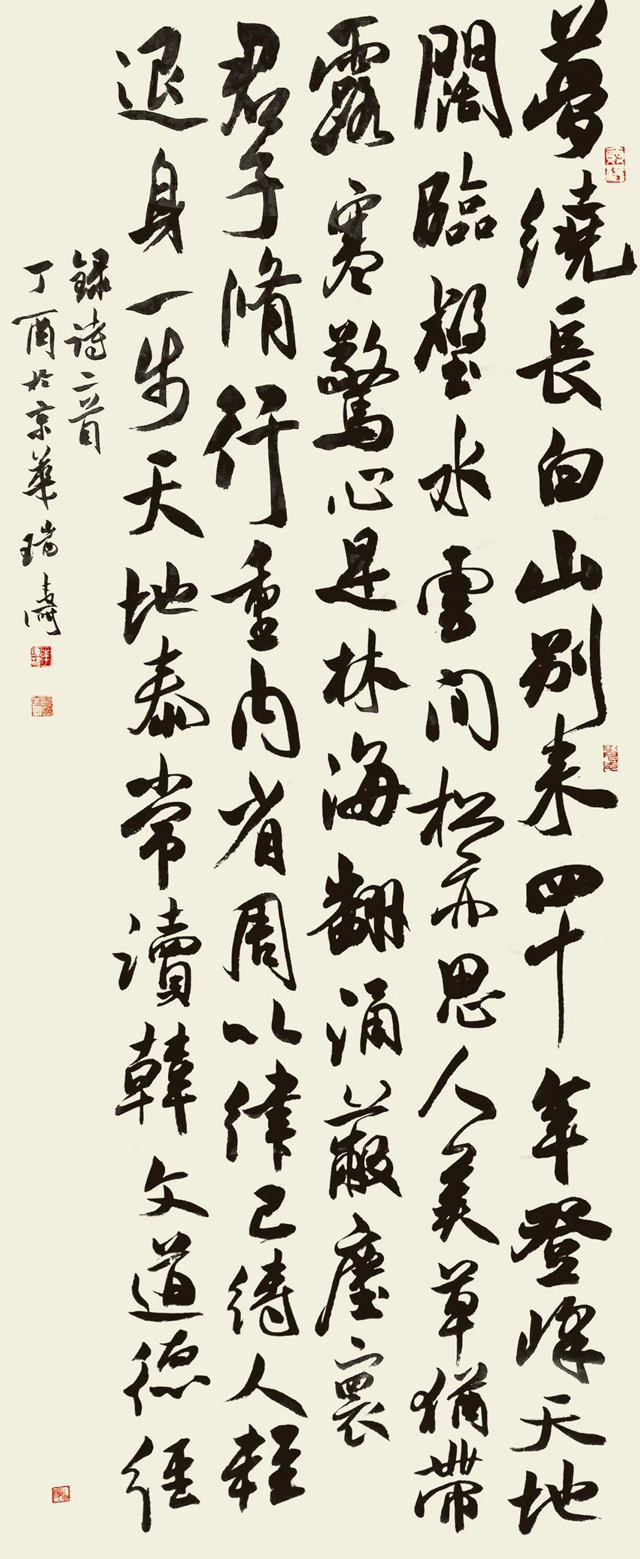 夢繞長白山別來四十年登峰天地
闊臨壑水雲間松亦思人美草猶帶
露寒驚心是林海翻涌蔽塵寰
君子脩行重內省周以律己待人輕
退身一步天地泰常讀韓文道德經
錄詩二首
丁酉於京華瑞濤